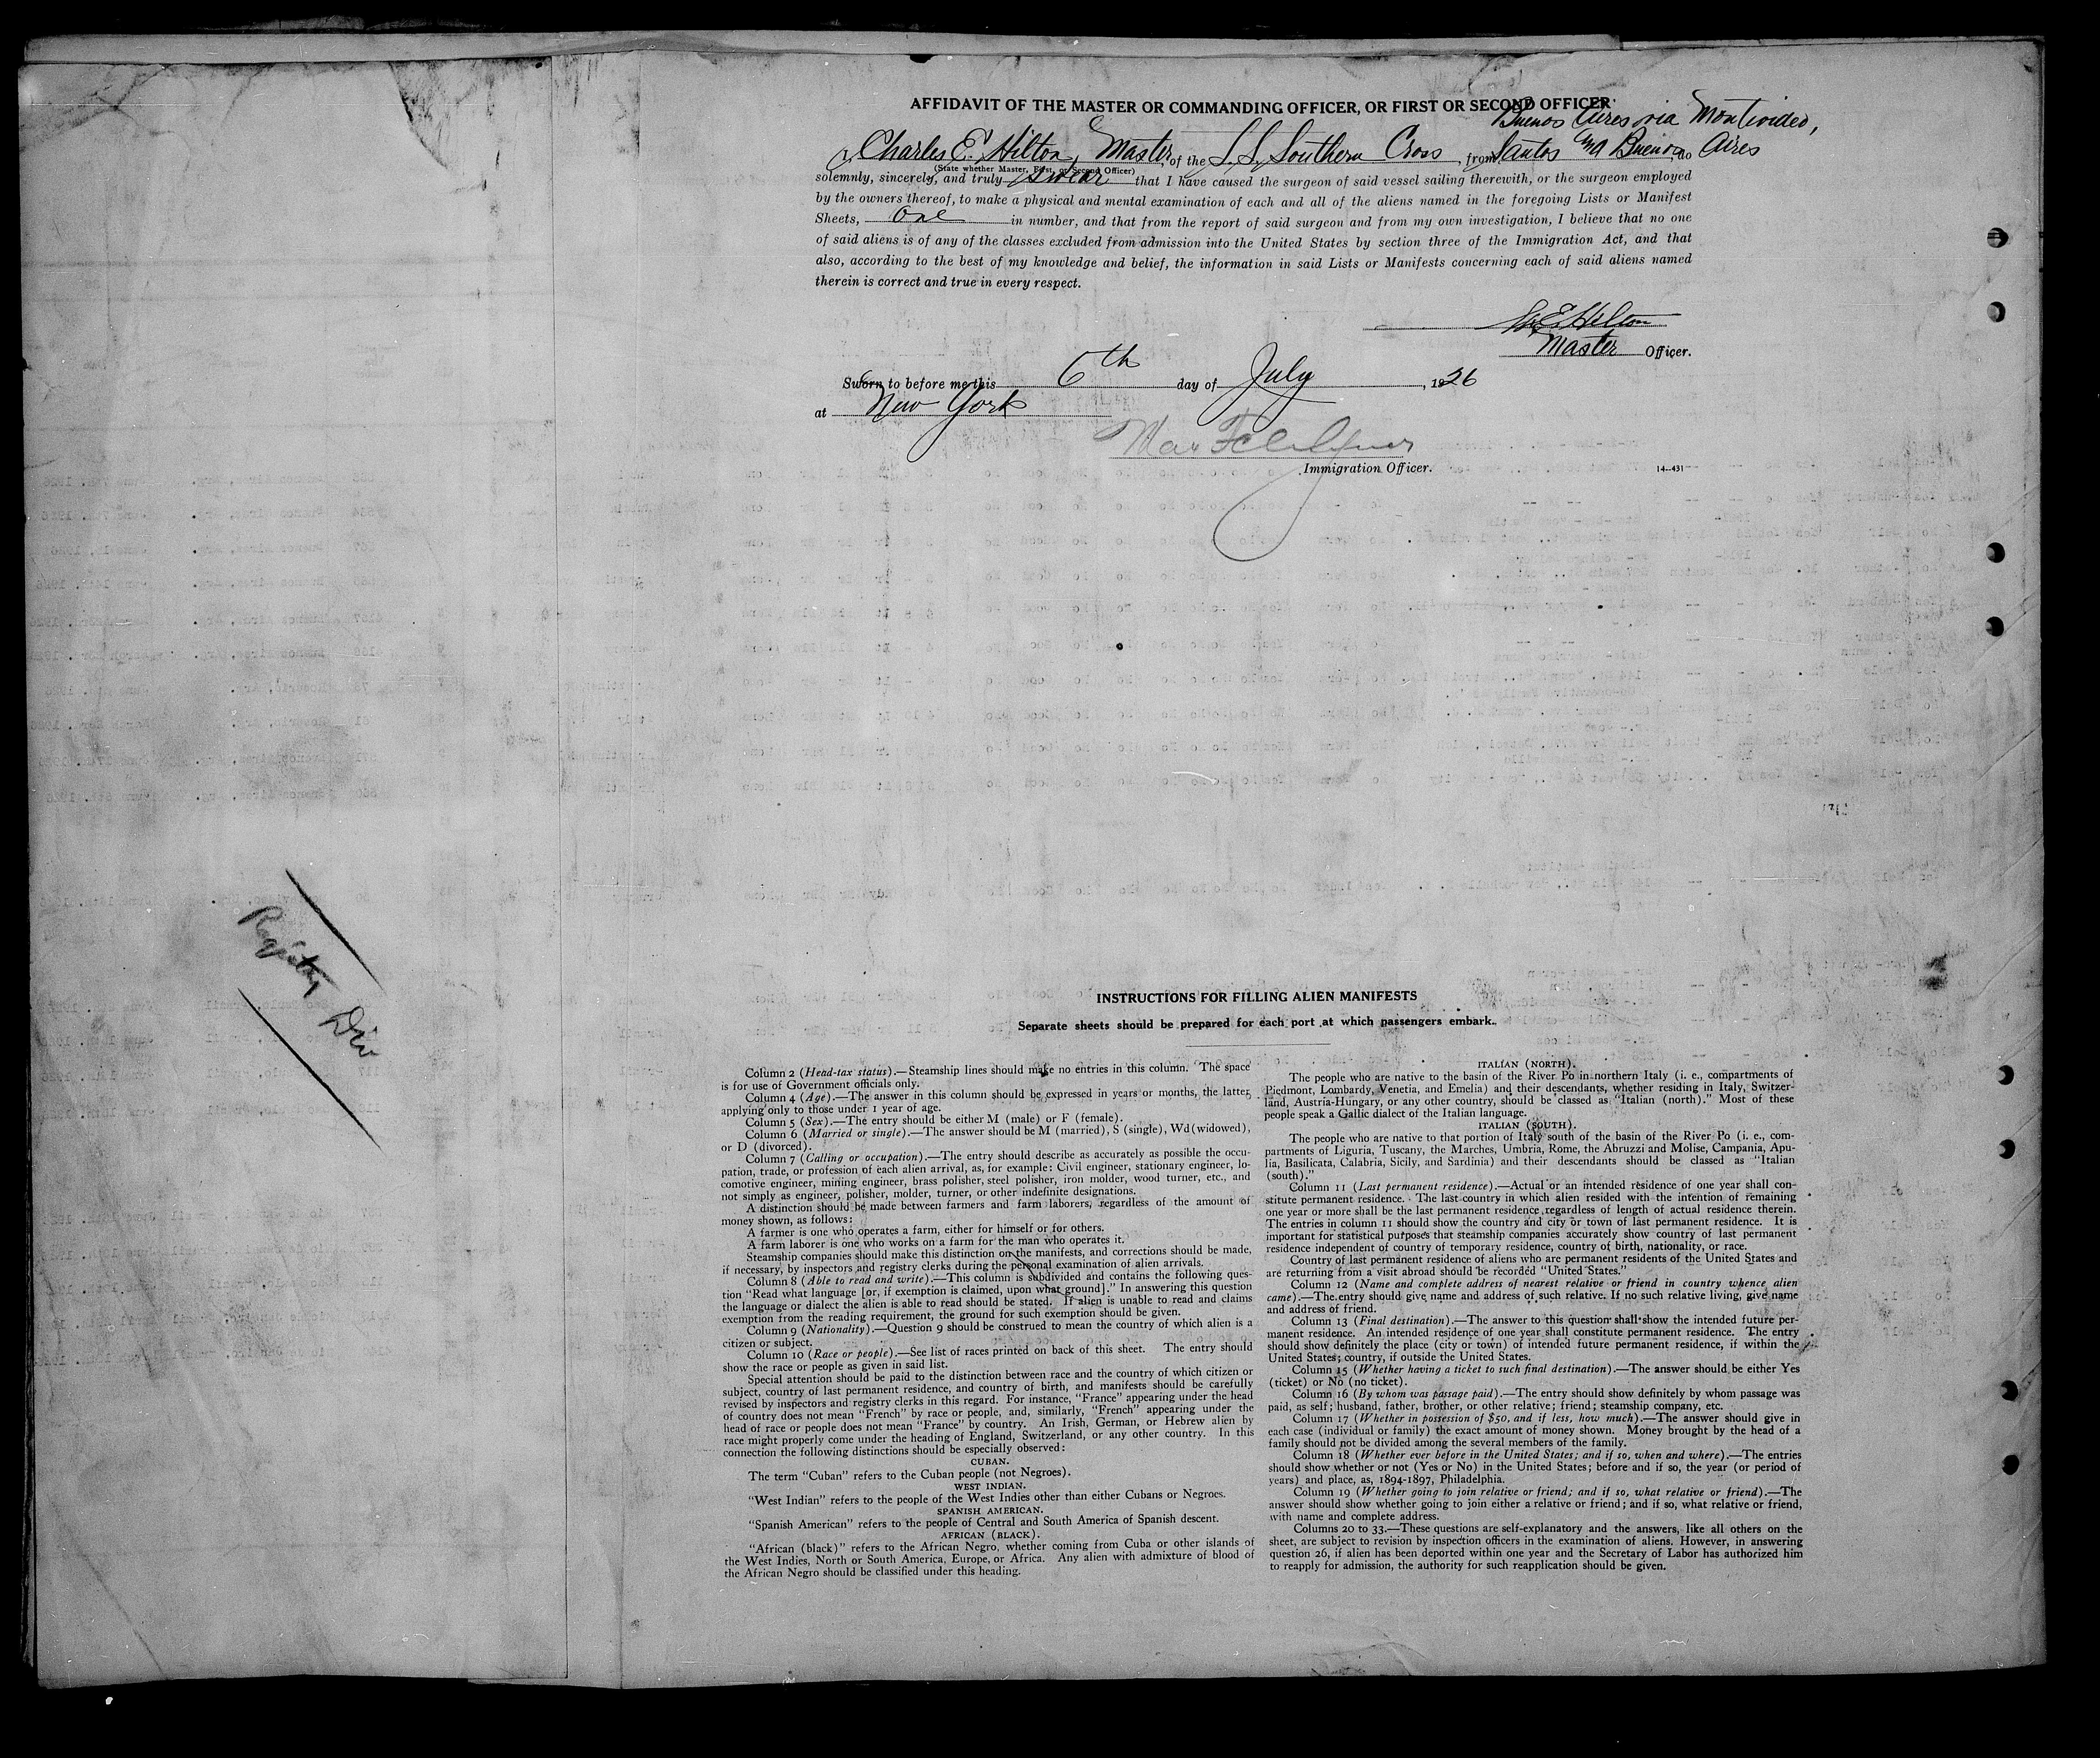 AFFIDAVIT OF THE MASTER OR COMMANDING OFFICER, OR FIRST OR SECOND OFFICER
Buenos Aires via Montivideo,
I, Charles E. Hilton, Master, of the S.S. Southern Cross, from Santos and Buenos Aires, do
(State whether Master, First, or Second Officer)
solemnly, sincerely, and truly swear that I have caused the surgeon of said vessel sailing therewith, or the surgeon employed
by the owners thereof, to make a physical and mental examination of each and all of the aliens named in the foregoing Lists or Manifest
Sheets, one in number, and that from the report of said surgeon and from my own investigation, I believe that no one
of said aliens is of any of the classes excluded from admission into the United States by section three of the Immigration Act, and that
also, according to the best of my knowledge and belief, the information in said Lists or Manifests concerning each of said aliens named
therein is correct and true in every respect.
E Hilton
Master Officer.
Sworn to before me this 6th day of July, 1926
at New York
Max
Immigration Officer.
14-431
Registry Div
INSTRUCTIONS FOR FILLING ALIEN MANIFESTS
Separate sheets should be prepared for each port at which passengers embark.
Column 2 (Head-tax status).—Steamship lines should make no entries in this column. The space
is for use of Government officials only.
Column 4 (Age).—The answer in this column should be expressed in years or months, the latter
applying only to those under 1 year of age.
Column 5 (Sex).—The entry should be either M (male) or F (female).
Column 6 (Married or single).—The answer should be M (married), S (single), Wd(widowed),
or D (divorced).
Column 7 (Calling or occupation).—The entry should describe as accurately as possible the occu-
pation, trade, or profession of each alien arrival, as, for example: Civil engineer, stationary engineer, lo-
comotive engineer, mining engineer, brass polisher, steel polisher, iron molder, wood turner, etc., and
not simply as engineer, polisher, molder, turner, or other indefinite designations.
A distinction should be made between farmers and farm laborers, regardless of the amount of
money shown, as follows:
A farmer is one who operates a farm, either for himself or for others.
A farm laborer is one who works on a farm for the man who operates it.
Steamship companies should make this distinction on the manifests, and corrections should be made,
if necessary, by inspectors and registry clerks during the personal examination of alien arrivals.
Column 8 (Able to read and write).—This column is subdivided and contains the following ques-
tion "Read what language [or, if exemption is claimed, upon what ground]." In answering this question
the language or dialect the alien is able to read should be stated. If alien is unable to read and claims
exemption from the reading requirement, the ground for such exemption should be given.
Column 9 (Nationality).—Question 9 should be construed to mean the country of which alien is a
citizen or subject.
Column 10 (Race or people).—See list of races printed on back of this sheet. The entry should
show the race or people as given in said list.
Special attention should be paid to the distinction between race and the country of which citizen or
subject, country of last permanent residence, and country of birth, and manifests should be carefully
revised by inspectors and registry clerks in this regard. For instance, "France" appearing under the head
of country does not mean "French" by race or people, and, similarly, "French" appearing under the
head of race or people does not mean "France" by country. An Irish, German, or Hebrew alien by
race might properly come under the heading of England, Switzerland, or any other country. In this
connection the following distinctions should be especially observed:
CUBAN.
The term "Cuban" refers to the Cuban people (not Negroes).
WEST INDIAN.
"West Indian" refers to the people of the West Indies other than either Cubans or Negroes.
SPANISH AMERICAN.
"Spanish American" refers to the people of Central and South America of Spanish descent.
AFRICAN (BLACK).
"African (black)" refers to the African Negro, whether coming from Cuba or other islands of
the West Indies, North or South America, Europe, or Africa. Any alien with admixture of blood of
the African Negro should be classified under this heading.
ITALIAN (NORTH).
The people who are native to the basin of the River Po in northern Italy (i. e., compartments of
Piedmont, Lombardy, Venetia, and Emelia) and their descendants, whether residing in Italy, Switzer-
land, Austria-Hungary, or any other country, should be classed as "Italian (north)." Most of these
people speak a Gallic dialect of the Italian language.
ITALIAN (SOUTH).
The people who are native to that portion of Italy south of the basin of the River Po (i. e., com-
partments of Liguria, Tuscany, the Marches, Umbria, Rome, the Abruzzi and Molise, Campania, Apu-
lia, Basilicata, Calabria, Sicily, and Sardinia) and their descendants should be classed as "Italian
(south)."
Column 11 (Last permanent residence).—Actual or an intended residence of one year shall con-
stitute permanent residence. The last country in which alien resided with the intention of remaining
one year or more shall be the last permanent residence regardless of length of actual residence therein.
The entries in column 11 should show the country and city or town of last permanent residence. It is
important for statistical purposes that steamship companies accurately show country of last permanent
residence independent of country of temporary residence, country of birth, nationality, or race.
Country of last permanent residence of aliens who are permanent residents of the United States and
are returning from a visit abroad should be recorded "United States."
Column 12 (Name and complete address of nearest relative or friend in country whence alien
came).—The entry should give name and address of such relative. If no such relative living, give name
and address of friend.
Column 13 (Final destination).—The answer to this question shall show the intended future per-
manent residence. An intended residence of one year shall constitute permanent residence. The entry
should show definitely the place (city or town) of intended future permanent residence, if within the
United States; country, if outside the United States.
Column 15 (Whether having a ticket to such final destination).—The answer should be either Yes
(ticket) or No (no ticket).
Column 16 (By whom was passage paid).—The entry should show definitely by whom passage was
paid, as self; husband, father, brother, or other relative; friend; steamship company, etc.
Column 17 (Whether in possession of $50, and if less, how much).—The answer should give in
each case (individual or family) the exact amount of money shown. Money brought by the head of a
family should not be divided among the several members of the family.
Column 18 (Whether ever before in the United States; and if so, when and where).—The entries
should show whether or not (Yes or No) in the United States; before and if so, the year (or period of
years) and place, as, 1894-1897, Philadelphia.
Column 19 (Whether going to join relative or friend; and if so, what relative or friend).—The
answer should show whether going to join either a relative or friend; and if so, what relative or friend,
with name and complete address.
Columns 20 to 33.—These questions are self-explanatory and the answers, like all others on the
sheet, are subject to revision by inspection officers in the examination of aliens. However, in answering
question 26, if alien has been deported within one year and the Secretary of Labor has authorized him
to reapply for admission, the authority for such reapplication should be given.